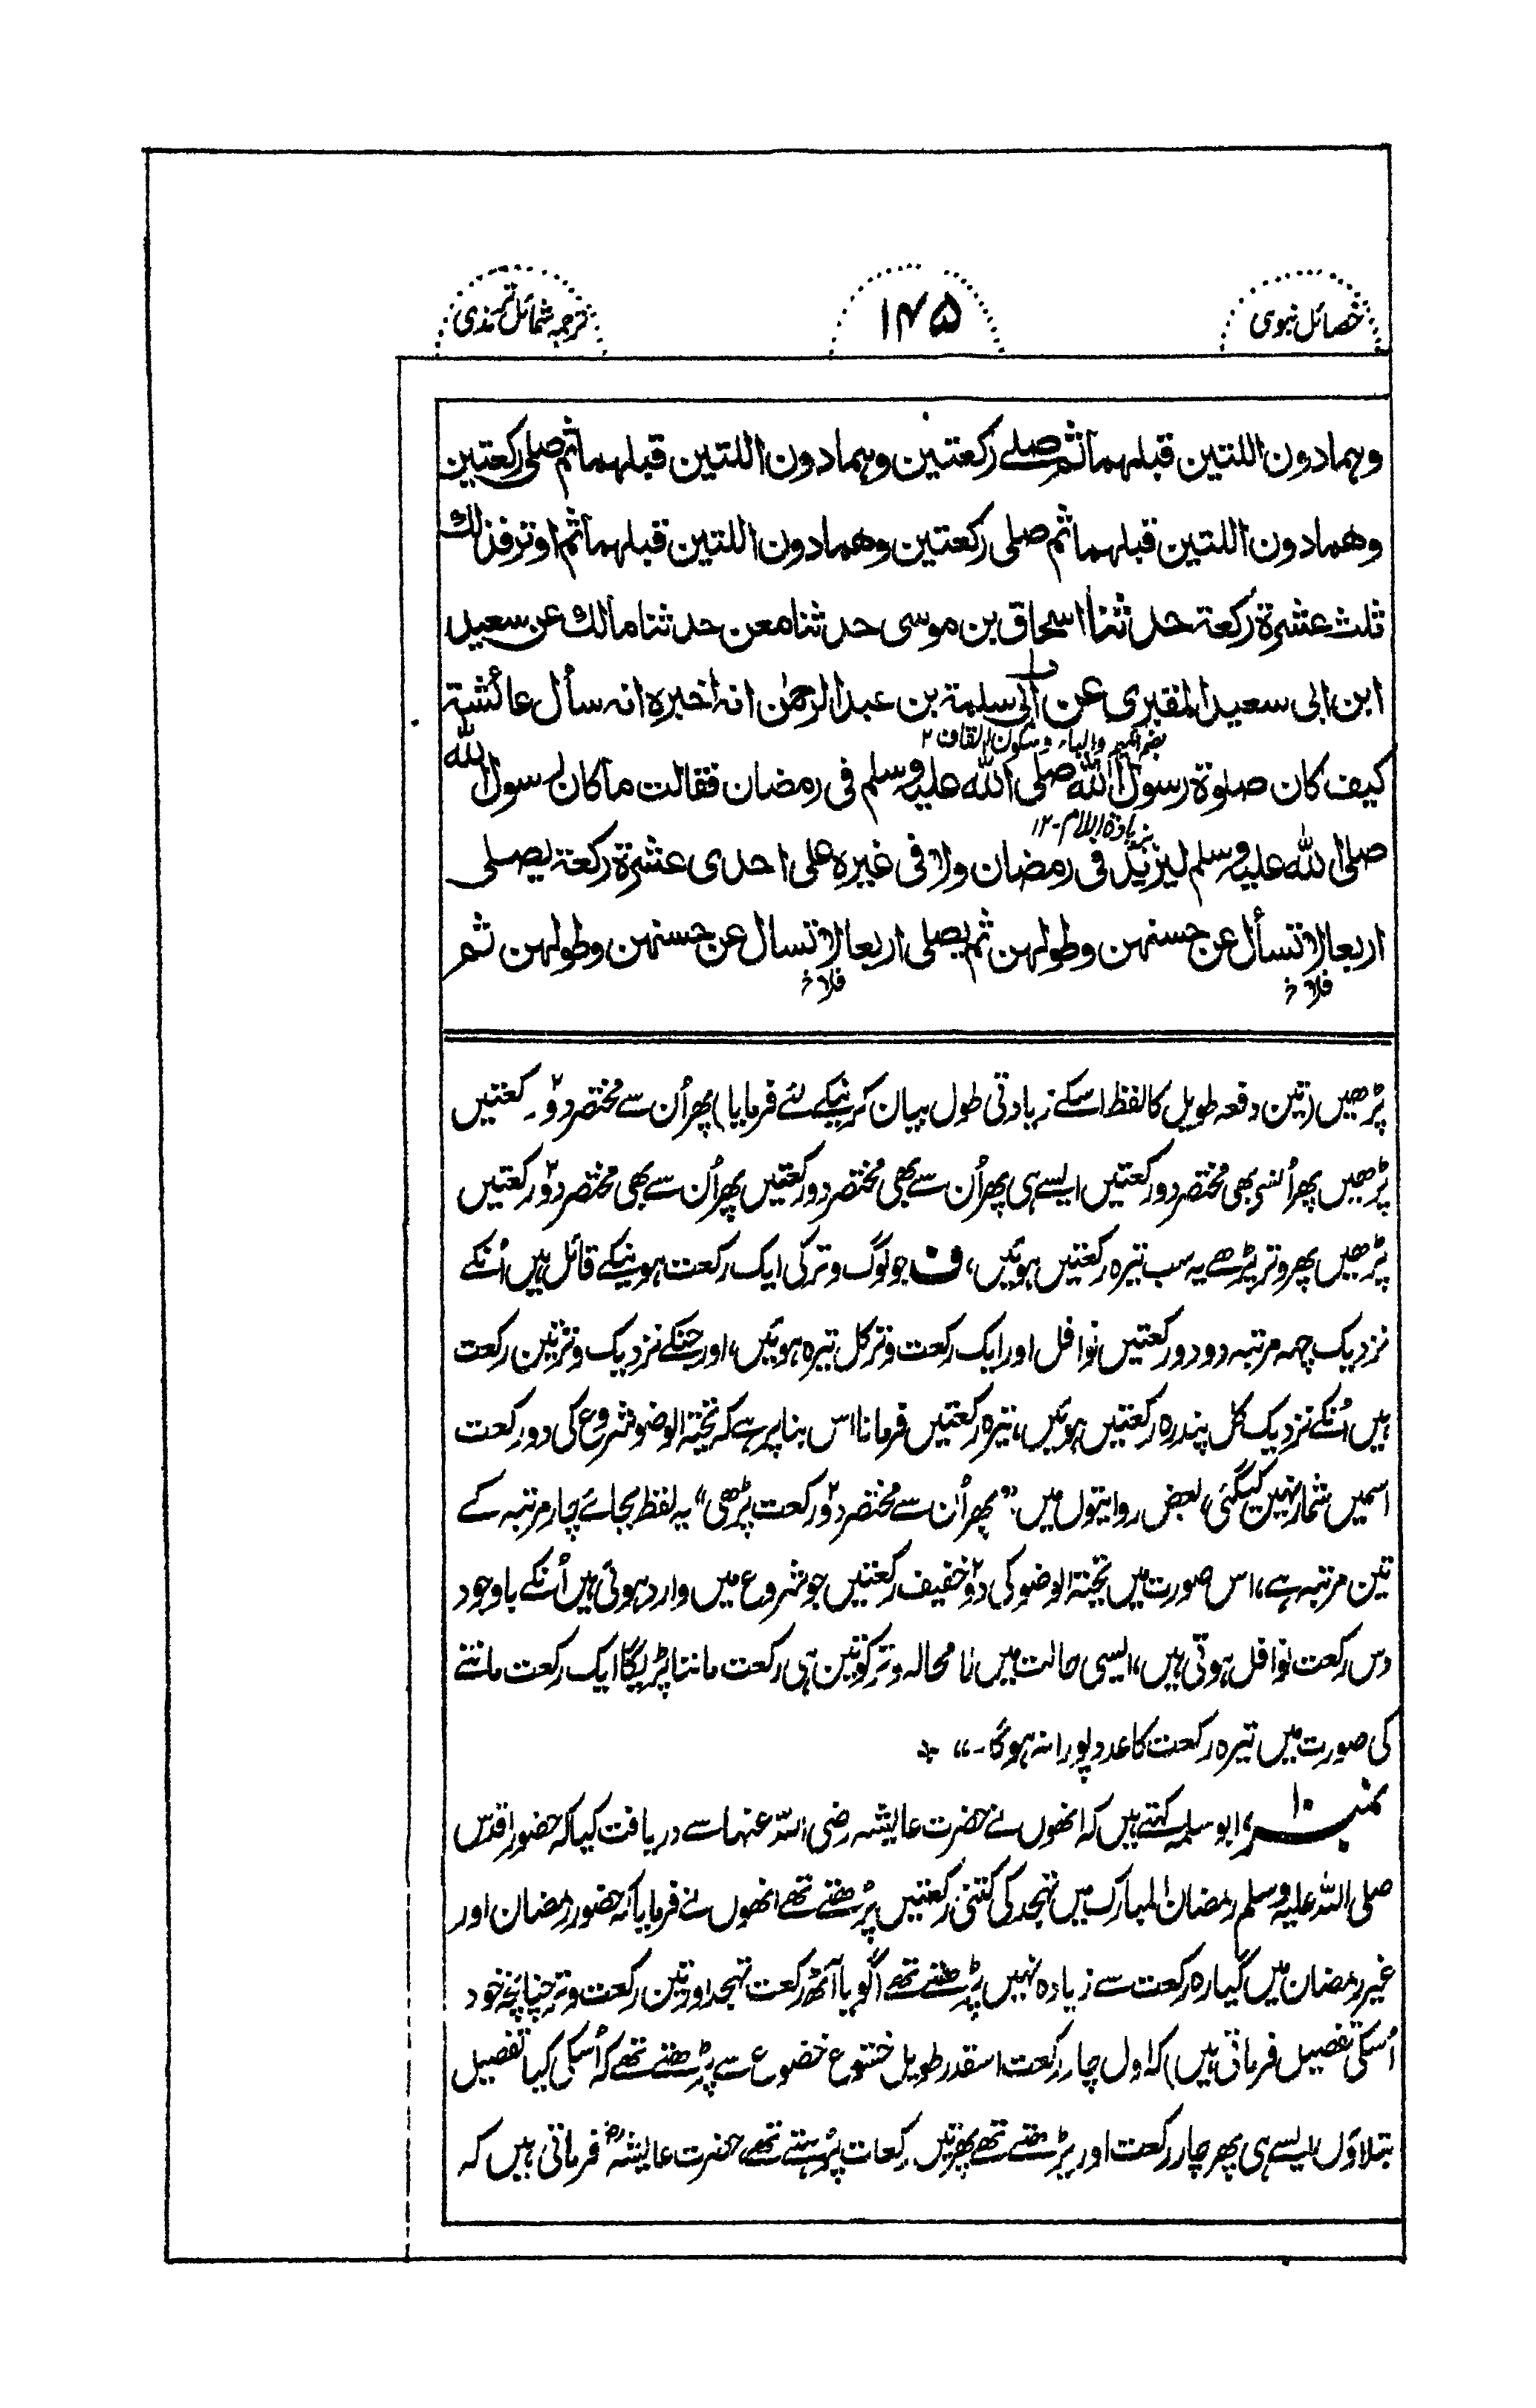 خصائل نبوی
۱۴۵
ترجمہ شمائل ترمذی
وہمادون اللتین قبلہما ثم صلے رکعتین وہمادون اللتین قبلہما ثم صلی رکعتین
وھمادون اللتین قبلہما ثم صلی رکعتین وھمادون اللتین قبلہما ثم اوتر فذالك
ثلث عشرة رکعة حدثنا اسحاق بن موسی حدثنا معن حدثنا مالك عن سعید
ابن ابی سعید المقبری عن ابی سلمة بن عبدالرحمٰن انہ اخبرہ انہ سأل عائشة
بضم المیم والباء وسکون القاف ۲
کیف کان صلوة رسول اللہ صلی اللہ علیہ وسلم فی رمضان فقالت ماکان رسول اللہ
بزیادة اللام-۱۲
صلی اللہ علیہ وسلم لیزید فی رمضان ولا فی غیرہ علی احدی عشرة رکعة یصلی
اربعا لا تسأل عن حسنہن وطولہن ثم یصلی اربعا لا تسال عن حسنہن وطولہن ثم
فلا خ
فلا خ
پڑھیں (تین دفعہ طویل کا لفظ اسکے زیادتی طول بیان کرنیکے لئے فرمایا) پھر اُن سے مختصر دو۲ رکعتیں
پڑھیں پھر اُنسے بھی مختصر دو رکعتیں ایسے ہی پھر اُن سے بھی مختصر دو رکعتیں پھر اُن سے بھی مختصر دو۲ رکعتیں
پڑھیں پھر وتر پڑھے یہ سب تیرہ رکعتیں ہوئیں، ف جو لوگ وتر کی ایک رکعت ہونیکے قائل ہیں اُنکے
نزدیک چھہ مرتبہ دو دو رکعتیں نوافل اور ایک رکعت وتر کل تیرہ ہوئیں، اور جنکے نزدیک وتر تین رکعت
ہیں اُنکے نزدیک کل پندرہ رکعتیں ہوئیں، تیرہ رکعتیں فرمانا اس بنا پر ہے کہ تحیۃ الوضو شروع کی دو رکعت
اسمیں شمار نہیں کیگئی، بعض روایتوں میں: "پھر اُن سے مختصر دو۲ رکعت پڑھی" یہ لفظ بجائے چار مرتبہ کے
تین مرتبہ ہے، اس صورت میں تحیۃ الوضو کی دو۲ خفیف رکعتیں جو شروع میں وارد ہوئی ہیں اُنکے باوجود
دس رکعت نوافل ہوتی ہیں، ایسی حالت میں نا محالہ وتر کو تین ہی رکعت ماننا پڑیگا ایک رکعت ماننے
کی صورت میں تیرہ رکعت کا عدد پورا نہ ہوگا-" *
نمبر۱۰ ابو سلمہ کہتے ہیں کہ انھوں نے حضرت عایشہ رضی اللہ عنہا سے دریافت کیا کہ حضور اقدس
صلی اللہ علیہ وسلم رمضان المبارک میں تہجد کی کتنی رکعتیں پڑھتے تھے انھوں نے فرمایا کہ حضور رمضان اور
غیر رمضان میں گیارہ رکعت سے زیادہ نہیں پڑھتے تھے (گویا آٹھ رکعت تہجد اور تین رکعت وتر چنانچہ خود
اُسکی تفصیل فرماتی ہیں) کہ اول چار رکعت اسقدر طویل خشوع خضوع سے پڑھتے تھے کہ اُسکی کیا تفصیل
بتلاؤں ایسے ہی پھر چار رکعت اور پڑھتے تھے پھر تین رکعات پڑہتے تھے، حضرت عایشہؓ فرماتی ہیں کہ